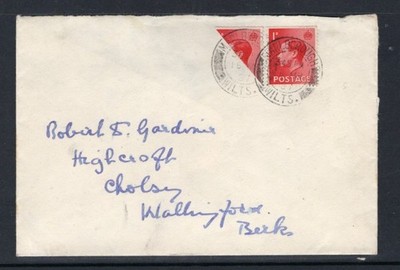 1D
POSTAGE
WILTS.
WILTS.
Robert S. Gardiner
Highcroft
Cholsey
Wallingford.
Berks